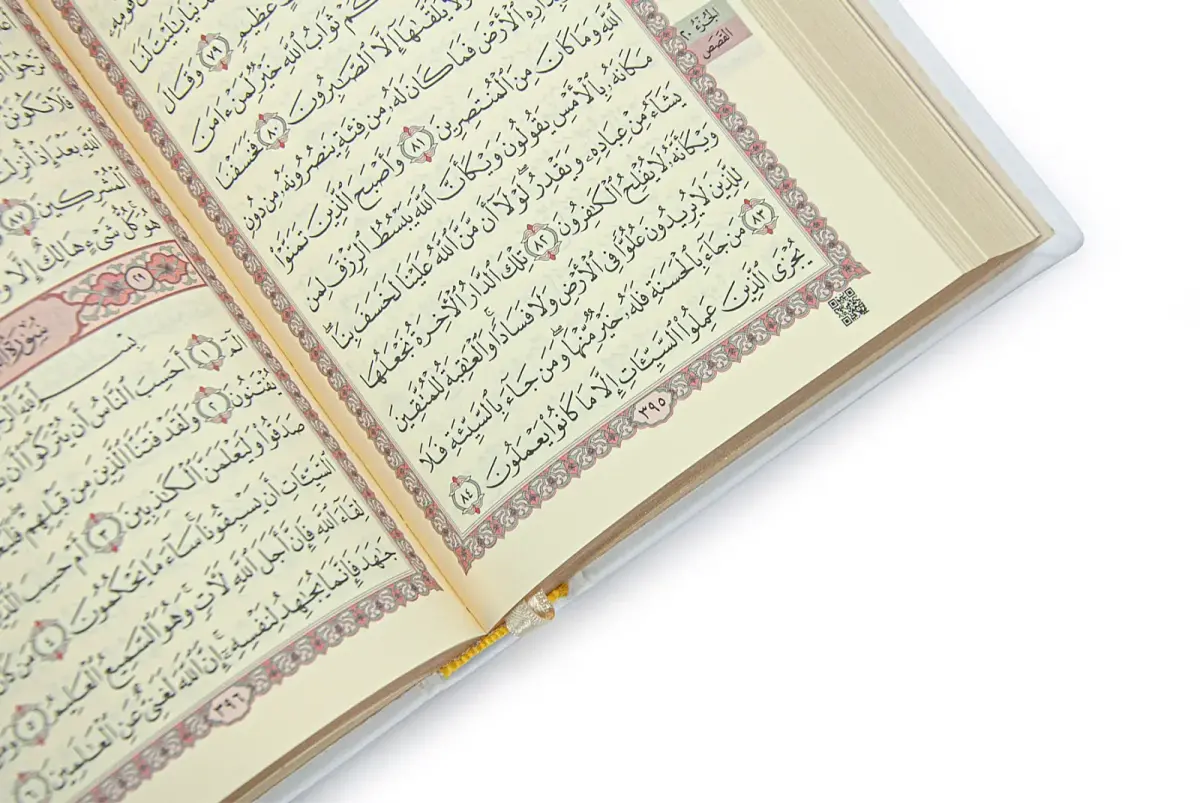 الجزء ٢٠
القصص
قومه
دنيا يليت لنا
عظيم ٧٩ وقال
كم ثواب الله خير لمن ءامن
ولا يلقىها إلا الصبرون ٨٠ فخسفنا
داره الأرض فما كان له من فئة ينصرونه من دون
الله وما كان من المنتصرين ٨١ وأصبح الذين تمنوا
مكانه بالأمس يقولون ويكأن الله يبسط الرزق لمن
يشاء من عباده ويقدر لولا أن من الله علينا لخسف بنا
ويكأنه لا يفلح الكفرون ٨٢ تلك الدار الءاخرة نجعلها
للذين لا يريدون علوا في الأرض ولا فسادا والعقبة للمتقين
٨٣ من جاء بالحسنة فله خير منها ومن جاء بالسيئة فلا
يجزى الذين عملوا السيئات إلا ما كانوا يعملون ٨٤
٣٩٥
فلا تكونن
الله بعد إذ أنزلت
المشركين ٨٧
هو كل شيء هالك إلا
٢٩
سورة
بسم الله
الم ١ أحسب الناس أن يتركوا أن
يفتنون ٢ ولقد فتنا الذين من قبلهم
صدقوا وليعلمن الكذبين ٣ أم حسب
السيئات أن يسبقونا ساء ما يحكمون ٤ من كان
لقاء الله فإن أجل الله لءات وهو السميع العليم ٥
جهد فإنما يجهد لنفسه إن الله لغني عن العلمين ٦
٣٩٦